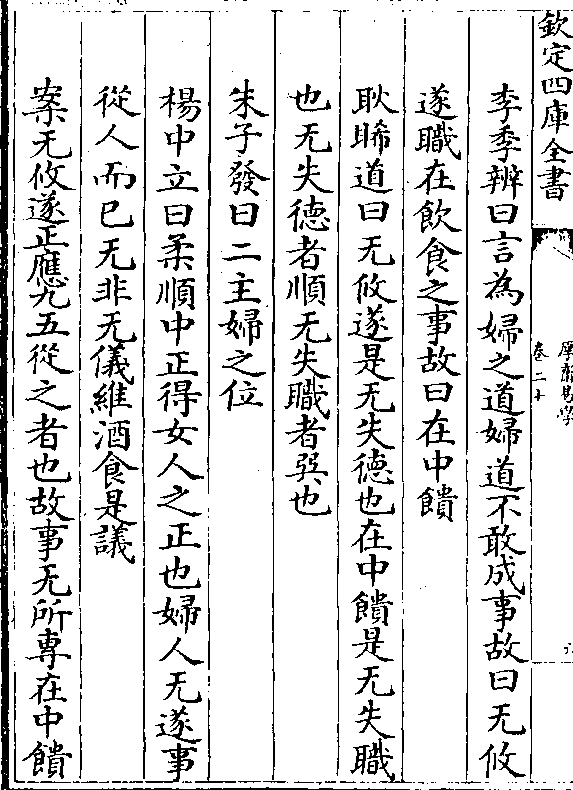 欽定四庫全書
厚齋易學
卷二十
李季辨曰言為婦之道婦道不敢成事故曰无攸
遂職在飲食之事故曰在中饋
耿睎道曰无攸遂是无失德也在中饋是无失職
也无失德者順无失職者巽也
朱子發曰二主婦之位
楊中立曰柔順中正得女人之正也婦人无遂事
從人而已无非无儀維酒食是議
案无攸遂正應九五從之者也故事无所專在中饋